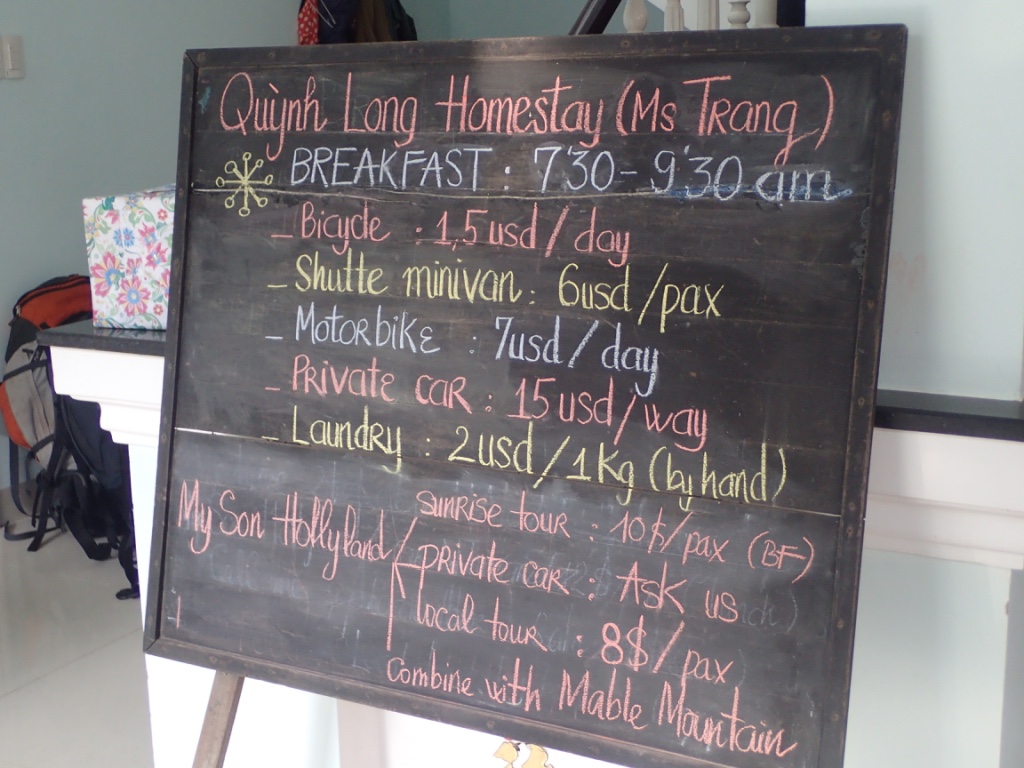 Quỳnh Long Homestay (Ms Trang)
BREAKFAST : 7'30 - 9'30 am
_ Bicycle : 1,5 usd / day
_ Shutte minivan : 6usd /pax
_ Motorbike : 7usd / day
_ Private car : 15 usd / way
_ Laundry : 2usd / 1Kg (by hand)
My Son Hollyland / sunrise tour : 10$/pax (BF)
private car : Ask us
local tour : 8$/pax
combine with Mable Mountain